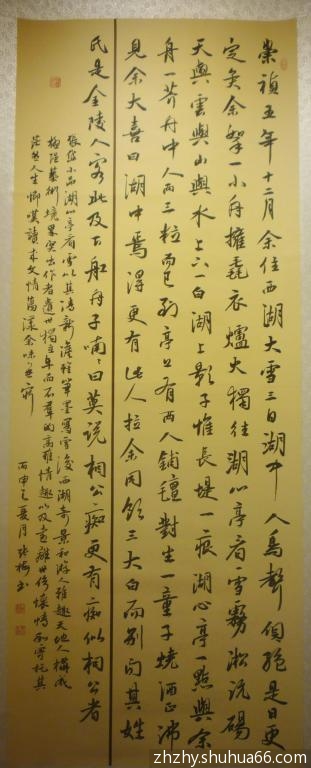 崇祯五年十二月余住西湖大雪三日湖中人鸟聲俱絶是日更
定矣余拏一小舟擁毳衣爐火獨往湖心亭看雪霧淞沆碭
天與雲與山與水上下一白湖上影子惟長堤一痕湖心亭一點與余
舟一芥舟中人两三粒而已到亭上有两人鋪氈對坐一童子燒酒正沸
見余大喜曰湖中焉得更有此人拉余同飲三大白而别问其姓
氏是金陵人客此及下船舟子喃曰莫说相公痴更有痴似相公者
張岱小品湖心亭看雪以其清新淡雅筆墨寫雪後西湖奇景和游人雅趣天地人構成
藝術境界突出作者遺世獨立卓而不羣的高雅情趣以及
茫茫人生慨嘆讀本文情蕩漾余味無窮
丙申之夏月
zhzhy.shuhua66.com